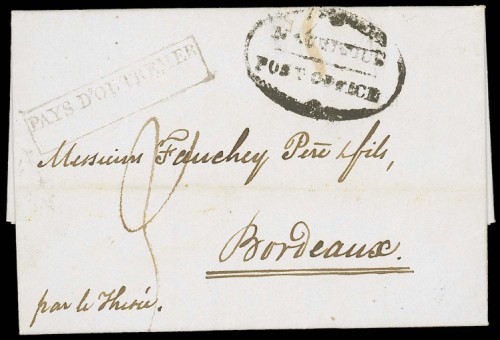 PAYS D'OUTREMER
MAURITIUS
POST OFFICE
Messieurs Fauchey Père & fils,
Bordeaux.
par le Thésée.